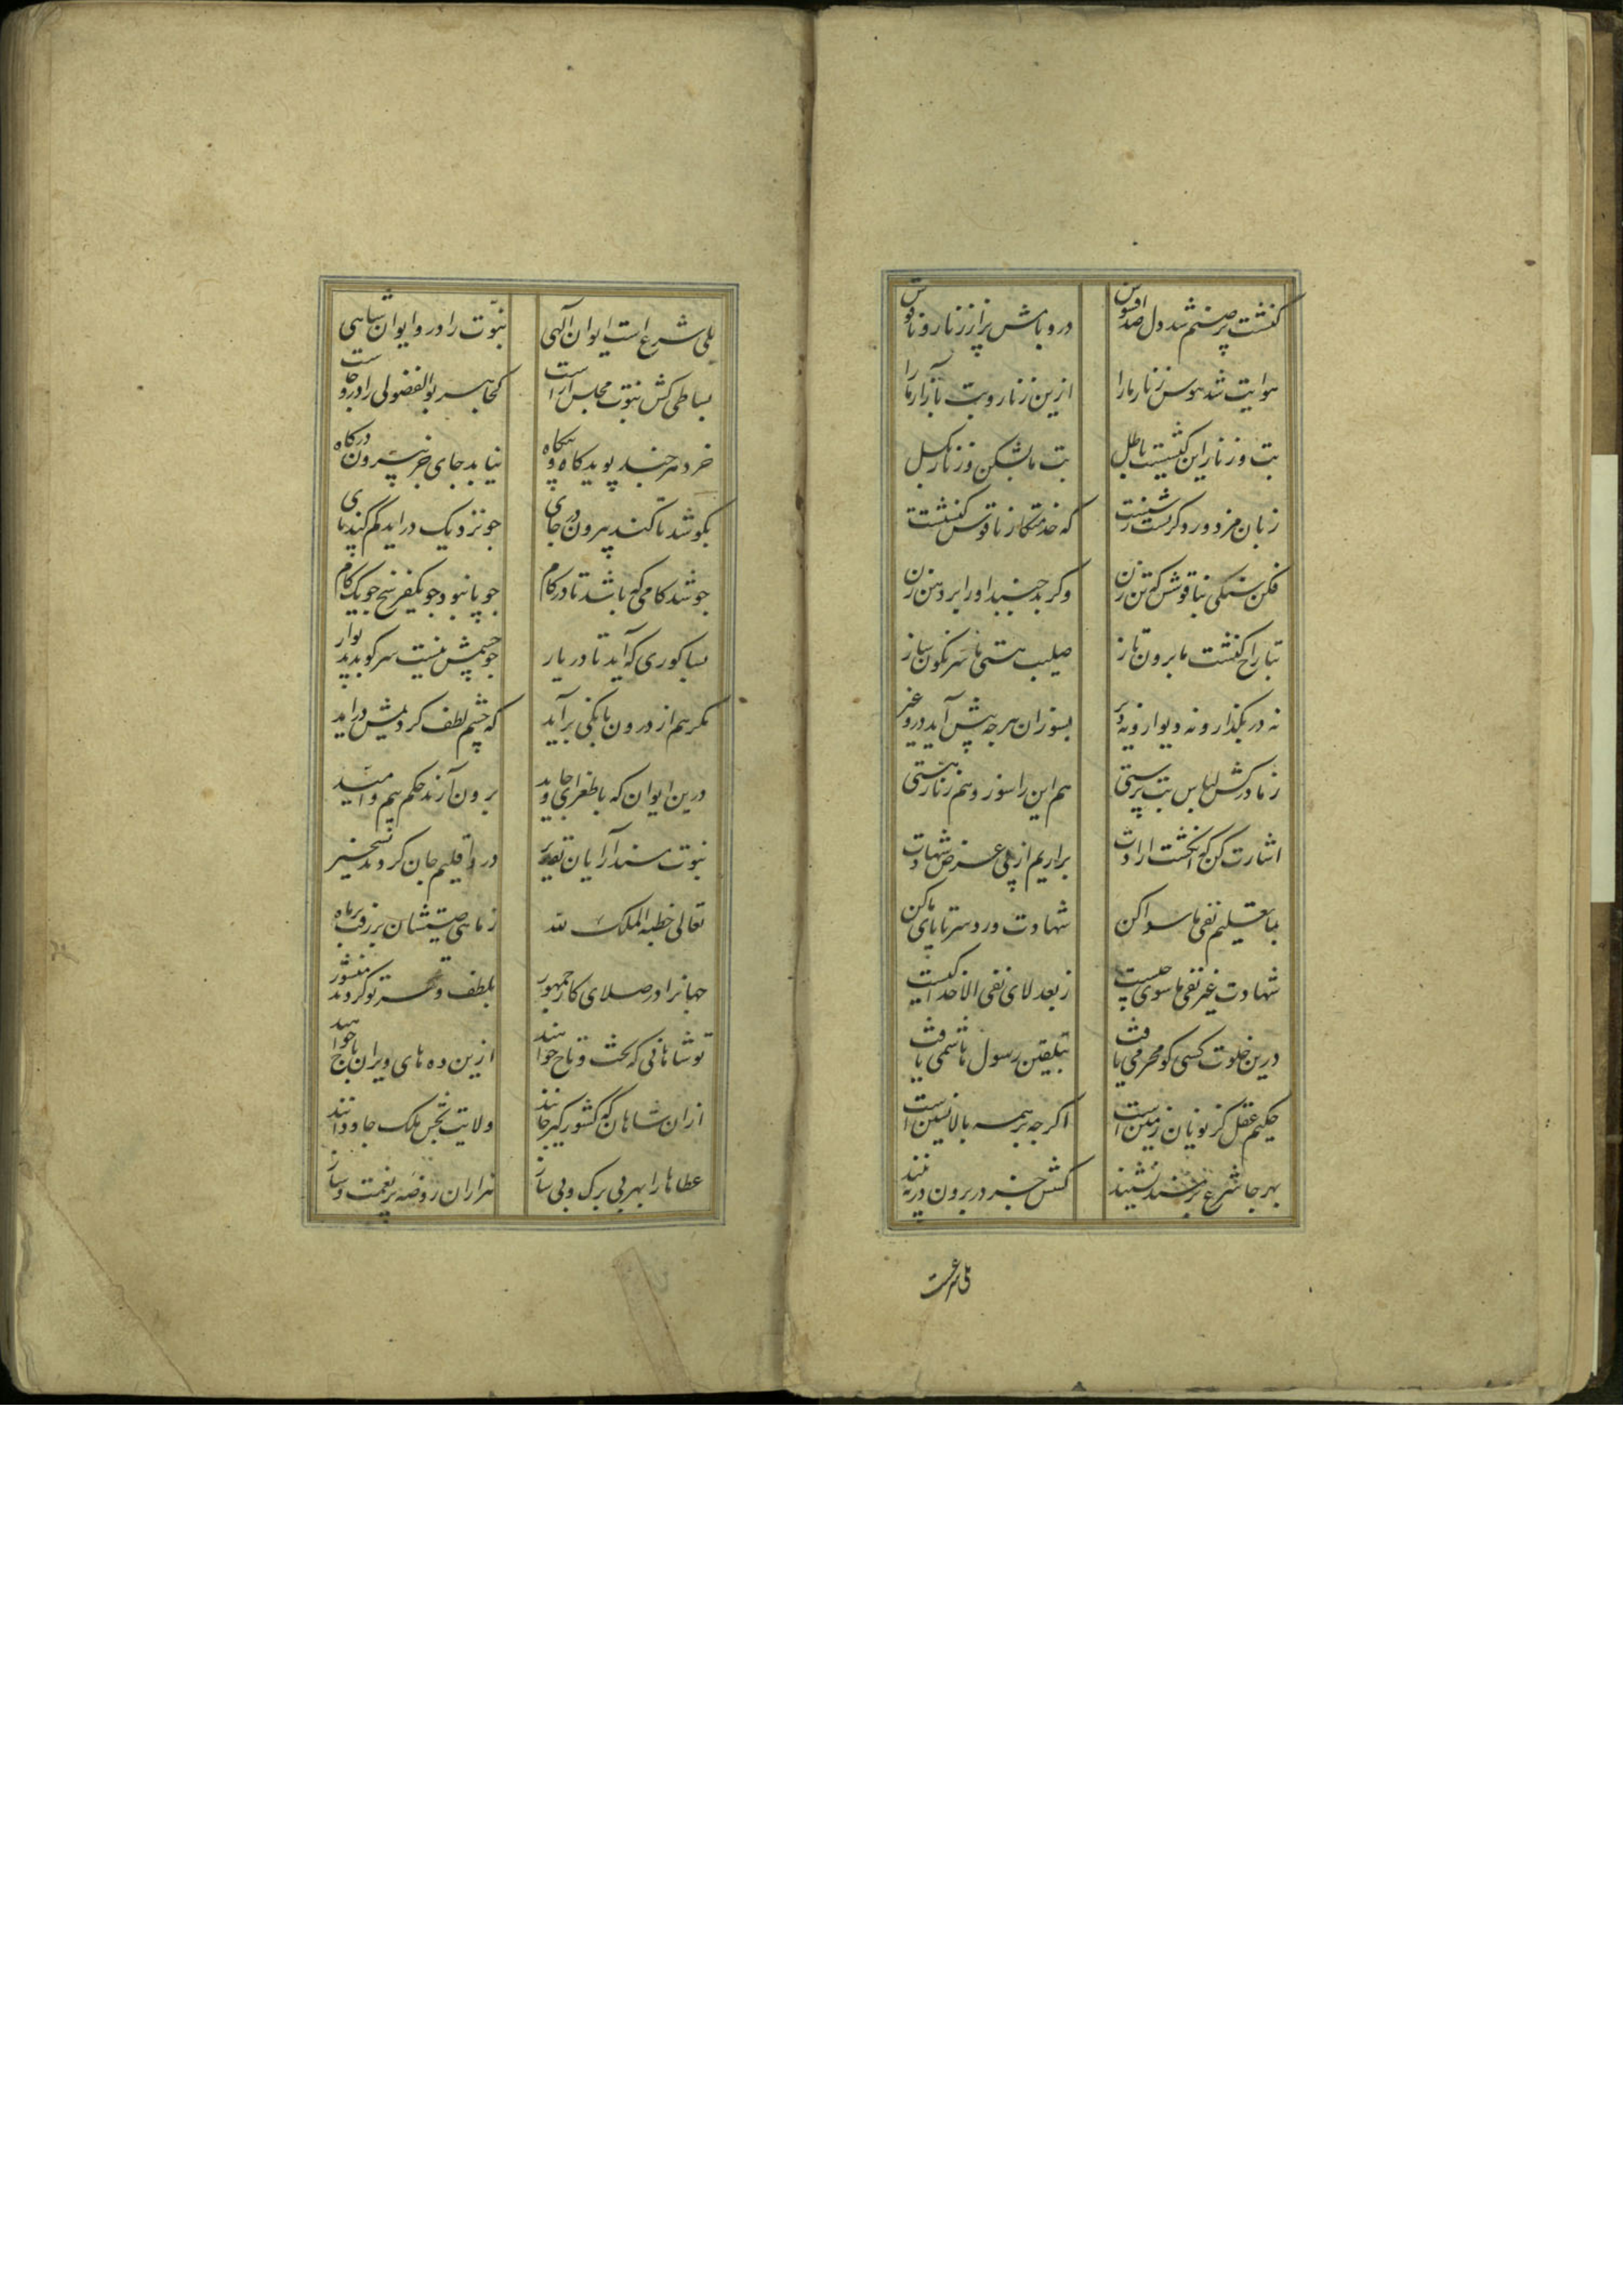 کنشت پر صنم شد دل صد افسوس
در و بامش پر از زنار و ناقوس
هوایت شد هوس زنار ما را
ازین زنار و بت باز آر ما را
بت و زنار این کیشیست باطل
بت ما بشکن و زنار بکسل
زبان مزدور دکر سرشتست
که خدمتکار ناقوس کنشتست
فکن سنکی بناقوسش که تن زن
وکر جنبد او را بر دهن زن
بتاراج کنشت ما برون تاز
صلیب هستی ما سرنکون ساز
نه در بکذار و نه دیوار و نه دیر
بسوزان هرچه پیش آید درو غیر
ز ما درکش لباس بت پرستی
هم این را سوز و هم زنار هستی
اشارت کن که انکشت ارادت
براریم از پی عرض شهادت
بتعلیم نفی ماسوا کن
شهادت ورد سر تا پای ما کن
شهادت غیر نفی ماسوی چیست
ز بعد لای نفی الا خدا کیست
درین خلوت کسی کو محرمی یافت
بتلقین رسول هاشمی یافت
حکیم عقل کز یونان زمین است
اکرچه بر همه بالانشین است
بهر جا شرع بر مسند نشیند
کسش جز در برون در نبیند
بلی شرعست
بلی شرع است ایوان الهی
نبوت را درو ایوان شاهی
بساطی کش نبوت مجلس آراست
کجا هر بوالفضولی را درو جاست
خرد هر چند پوید کاه و بیکاه
نیابد جای جز بیرون درکاه
بکوشد تا کند بیرون در جای
چو نزدیک در آید کم کند پای
چو شد کامی که باشد تا در کام
چو پا نبود چو یکفرسخ چو یک کام
بسا کوری که آید تا در یار
چو چشمش نیست سر کوبد بدیوار
مکر هم از درون بانکی برآید
که چشم لطف کردیمش درآید
درین ایوان که با طغرای جاوید
برون آرند حکم بیم و امید
نبوت مسند آرایان تقدیر
در اقلیم جان کردند تسخیر
تعالی خطبه الملک لله
ز ماهی صیتشان بر رفت بر ماه
جهانرا در صلای کار جمهور
بلطف و قهر تو کردند منشور
تو شاهانی که تخت و تاج خواهند
ازین ده های ویران باج خواهند
ازان شاهان که کشور کیر جانند
ولایت بخش ملک جاودانند
عطاها را بهر بی برک و بی ساز
هزاران روضه پر نعمت و ساز